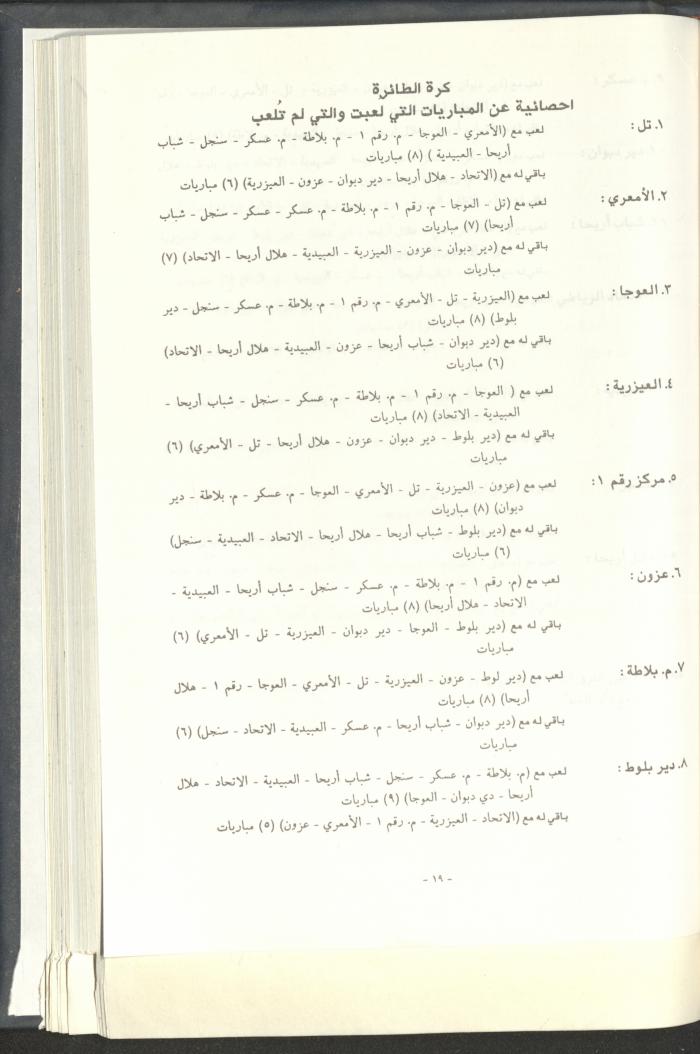 كرة الطائرة
احصائية عن المباريات التي لُعبت والتي لم تُلعب
١. تل: لعب مع (الأمعري - العوجا - م. رقم ١ - م. بلاطة - م. عسكر - سنجل - شباب
أريحا - العبيدية ) (٨) مباريات
باقي له مع (الاتحاد - هلال أريحا - دير دبوان - عزون - العيزرية) (٦) مباريات
٢. الأمعري: لعب مع (تل - العوجا - م. رقم ١ - م. بلاطة - م. عسكر - عسكر - سنجل - شباب
أريحا) (٧) مباريات
باقي له مع (دير دبوان - عزون - العيزرية - العبيدية - هلال أريحا - الاتحاد) (٧)
مباريات
٣. العوجا: لعب مع (العيزرية - تل - الأمعري - م. رقم ١ - م. بلاطة - م. عسكر - سنجل - دير
بلوط) (٨) مباريات
باقي له مع (دير دبوان - شباب أريحا - عزون - العبيدية - هلال أريحا - الاتحاد)
(٦) مباريات
٤. العيزرية: لعب مع ( العوجا - م. رقم ١ - م. بلاطة - م. عسكر - سنجل - شباب أريحا -
العبيدية - الاتحاد) (٨) مباريات
باقي له مع (دير بلوط - دير دبوان - عزون - هلال أريحا - تل - الأمعري) (٦)
مباريات
٥. مركز رقم ١: لعب مع (عزون - العيزرية - تل - الأمعري - العوجا - م. عسكر - م. بلاطة - دير
دبوان) (٨) مباريات
باقي له مع (دير بلوط - شباب أريحا - هلال أريحا - الاتحاد - العبيدية - سنجل)
(٦) مباريات
٦. عزون: لعب مع (م. رقم ١ - م. بلاطة - م. عسكر - سنجل - شباب أريحا - العبيدية -
الاتحاد - هلال أريحا) (٨) مباريات
باقي له مع (دير بلوط - العوجا - دير دبوان - العيزرية - تل - الأمعري) (٦)
مباريات
٧. م. بلاطة: لعب مع (دير لوط - عزون - العيزرية - تل - الأمعري - العوجا - رقم ١ - هلال
أريحا) (٨) مباريات
باقي له مع (دير دبوان - شباب أريحا - م. عسكر - العبيدية - الاتحاد - سنجل) (٦)
مباريات
٨. دير بلوط: لعب مع (م. بلاطة - م. عسكر - سنجل - شباب أريحا - العبيدية - الاتحاد - هلال
أريحا - دي دبوان - العوجا) (٩) مباريات
باقي له مع (الاتحاد - العيزرية - م. رقم ١ - الأمعري - عزون) (٥) مباريات
- ١٩ -